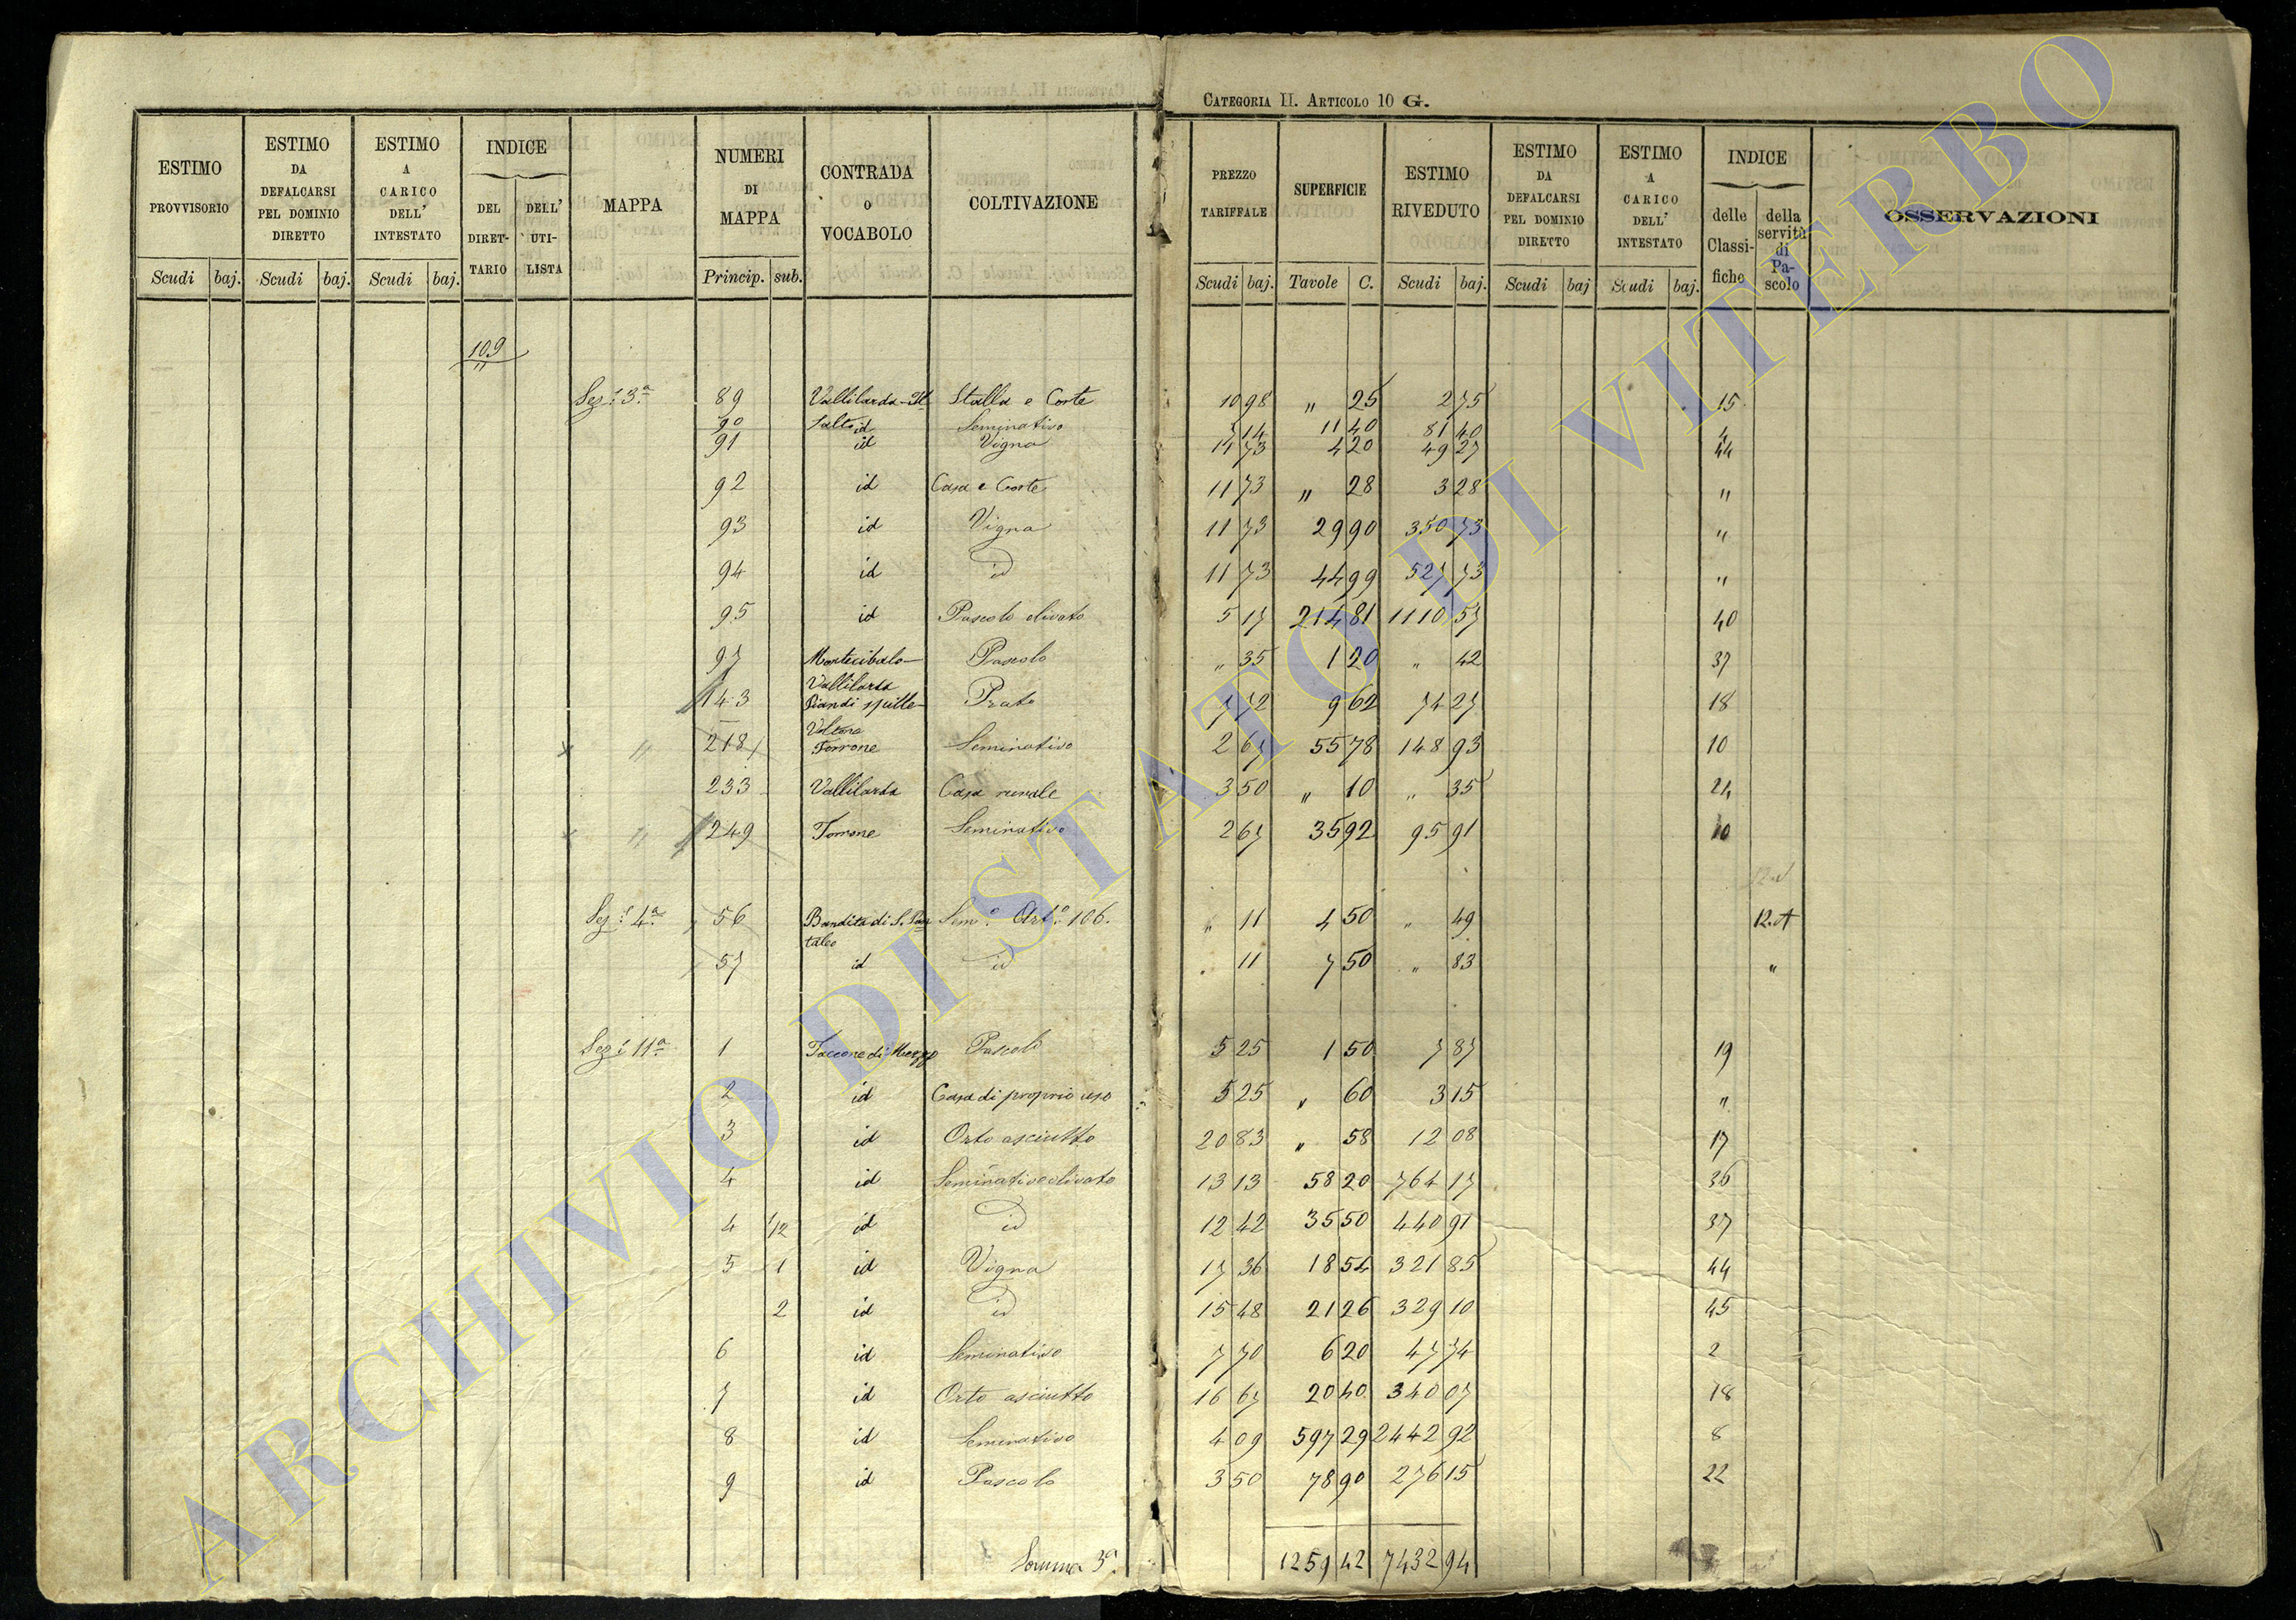 CATEGORIA II. ARTICOLO 10 G.
ESTIMO PROVVISORIO | ESTIMO DA DEFALCARSI PEL DOMINIO DIRETTO | ESTIMO A CARICO DELL' INTESTATO | INDICE | MAPPA | NUMERI DI MAPPA | CONTRADA O VOCABOLO | COLTIVAZIONE | PREZZO TARIFFALE | SUPERFICIE | ESTIMO RIVEDUTO | ESTIMO DA DEFALCARSI PEL DOMINIO DIRETTO | ESTIMO A CARICO DELL' INTESTATO | INDICE | OSSERVAZIONI
DEL DIRET-TARIO | DELL' UTI-LISTA | delle Classi-fiche | della servitù di Pa-scolo
Scudi baj. Scudi baj. Scudi baj. Princip. sub. Scudi baj. Tavole C. Scudi baj. Scudi baj Scudi baj.
109
Sez: 3.a 89 Vallilarda-Il Stalla e Corte 10 98 " 25 2 75 15
90 Salto id Seminativo 7 14 11 40 81 40 4
91 id Vigna 11 73 4 20 49 27 44
92 id Casa e Corte 11 73 " 28 3 28 "
93 id Vigna 11 73 29 90 350 73 "
94 id id 11 73 44 99 527 73 "
95 id Pascolo olivato 5 17 214 81 1110 57 40
97 Montecibalo- Pascolo " 35 1 20 " 42 37
Vallilarda
143 Piandi spille- Prato 7 72 9 62 74 27 18
Voltone
218 Torrone Seminativo 2 67 55 78 148 93 10
233 Vallilarda Casa rurale 3 50 " 10 " 35 21
249 Torrone Seminativo 2 67 35 92 95 91 10
Sez: 4a 56 Bandita di S. Pan Sem.o Art.o 106. " 11 4 50 " 49 12.A
taleo
57 id id " 11 7 50 " 83 "
Sez: 11a 1 Taccone di Mezzo Pascolo 5 25 1 50 7 87 19
2 id Casa di proprio uso 5 25 " 60 3 15 "
3 id Orto asciutto 20 83 " 58 12 08 17
4 id Seminativo olivato 13 13 58 20 764 17 36
4 1/2 id id 12 42 35 50 440 91 37
5 1 id Vigna 17 36 18 54 321 85 44
2 id id 15 48 21 26 329 10 45
6 id Seminativo 7 70 6 20 47 74 2
7 id Orto asciutto 16 67 20 40 340 07 18
8 id Seminativo 4 09 597 29 2442 92 8
9 id Pascolo 3 50 78 90 276 15 22
Somma 3a. 1259 42 7432 94
ARCHIVIO DI STATO DI VITERBO